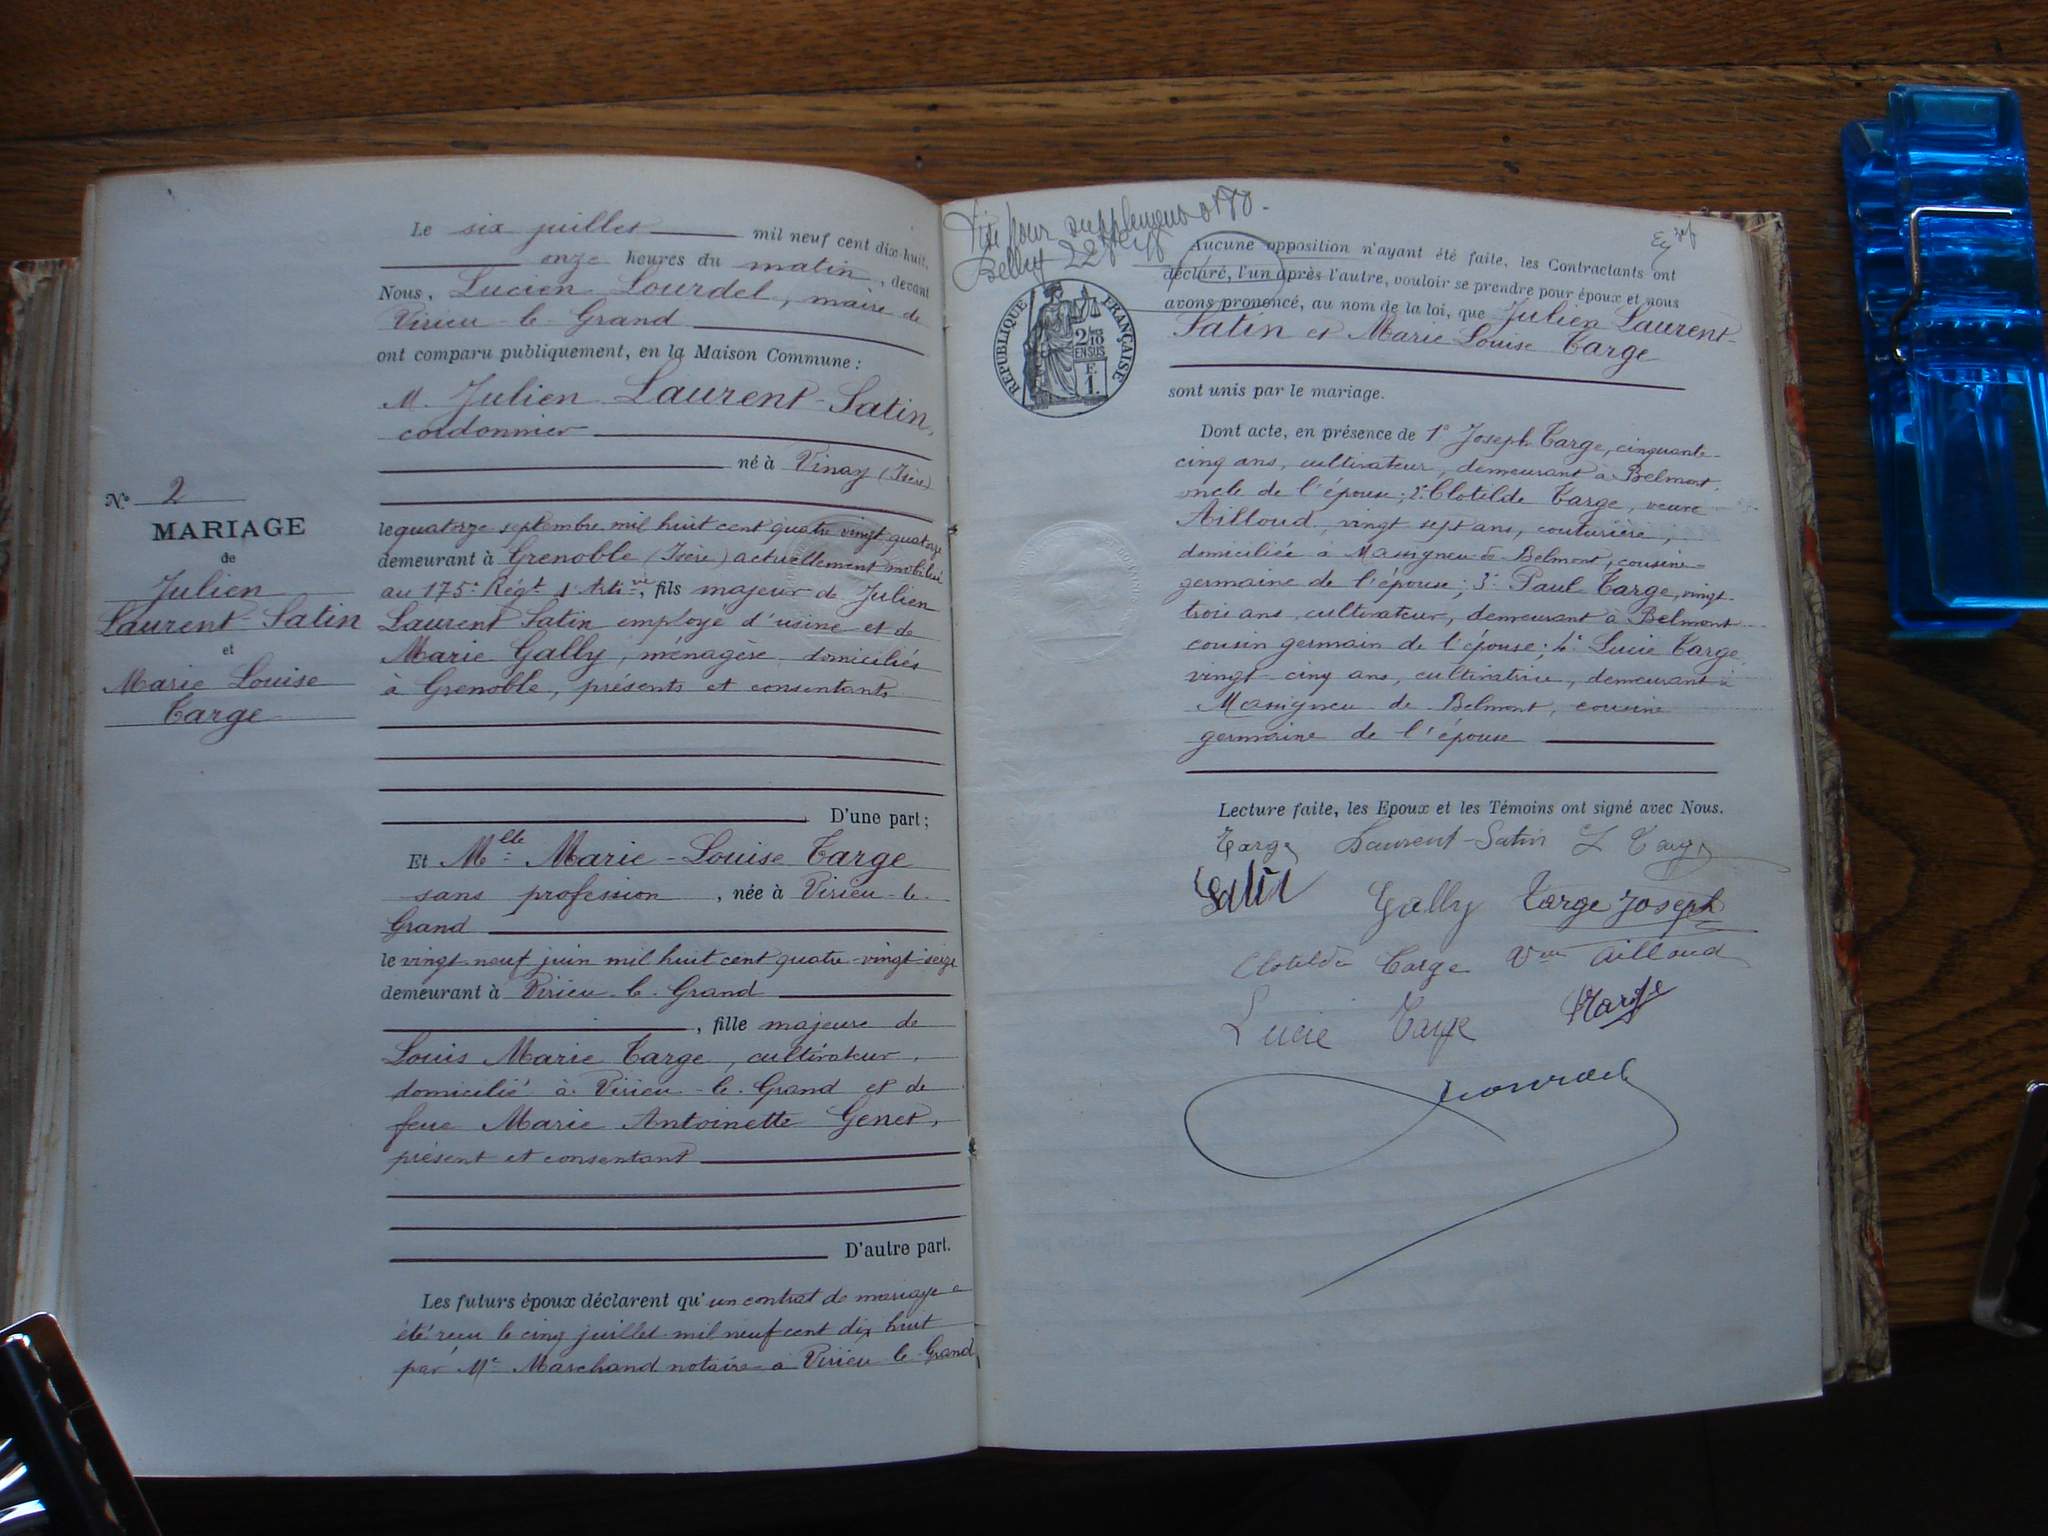 Le six juillet mil neuf cent dix-huit,
onze heures du matin, devant
Nous, Lucien Lourdel, maire de
Virieu-le-Grand
ont comparu publiquement, en la Maison Commune :
M. Julien Laurent-Satin,
cordonnier
né à Vinay (Isère)
le quatorze septembre mil huit cent quatre vingt quatorze
demeurant à Grenoble (Isère) actuellement mobilisé
au 175e Régt d'Artie, fils majeur de Julien
Laurent Satin employé d'usine et de
Marie Gally, ménagère domiciliés
à Grenoble, présents et consentants
D'une part ;
No 2
MARIAGE
de
Julien
Laurent-Satin
et
Marie Louise
Targe
Et Mlle Marie-Louise Targe
sans profession, née à Virieu-le-
Grand
le vingt-neuf juin mil huit cent quatre-vingt seize
demeurant à Virieu-le-Grand
, fille majeure de
Louis Marie Targe, cultivateur,
domicilié à Virieu-le-Grand et de
feue Marie Antoinette Genet,
présent et consentant
D'autre part.
Les futurs époux déclarent qu'un contrat de mariage a
été reçu le cinq juillet mil neuf cent dix huit
par Me Marchand notaire à Virieu le Grand
Visé pour supplément
Belley
RÉPUBLIQUE FRANÇAISE
2/10
EN SUS
F.
1.
Aucune opposition n'ayant été faite, les Contractants ont
déclaré, l'un après l'autre, vouloir se prendre pour époux et nous
avons prononcé, au nom de la loi, que Julien Laurent-
Satin et Marie Louise Targe
sont unis par le mariage.
Dont acte, en présence de 1° Joseph Targe, cinquante-
cinq ans, cultivateur, demeurant à Belmont,
oncle de l'épouse ; 2° Clotilde Targe, veuve
Ailloud, vingt sept ans, couturière,
domiciliée à Massigneu de Belmont, cousine
germaine de l'épouse ; 3° Paul Targe, vingt-
trois ans, cultivateur, demeurant à Belmont
cousin germain de l'épouse ; 4° Lucie Targe,
vingt-cinq ans, cultivatrice, demeurant à
Massigneu de Belmont, cousine
germaine de l'épouse
Lecture faite, les Epoux et les Témoins ont signé avec Nous.
Targe Laurent-Satin L Targe
Satin Gally Targe Joseph
Clotilde Targe Vve Ailloud
Lucie Targe Targe
Lourdel